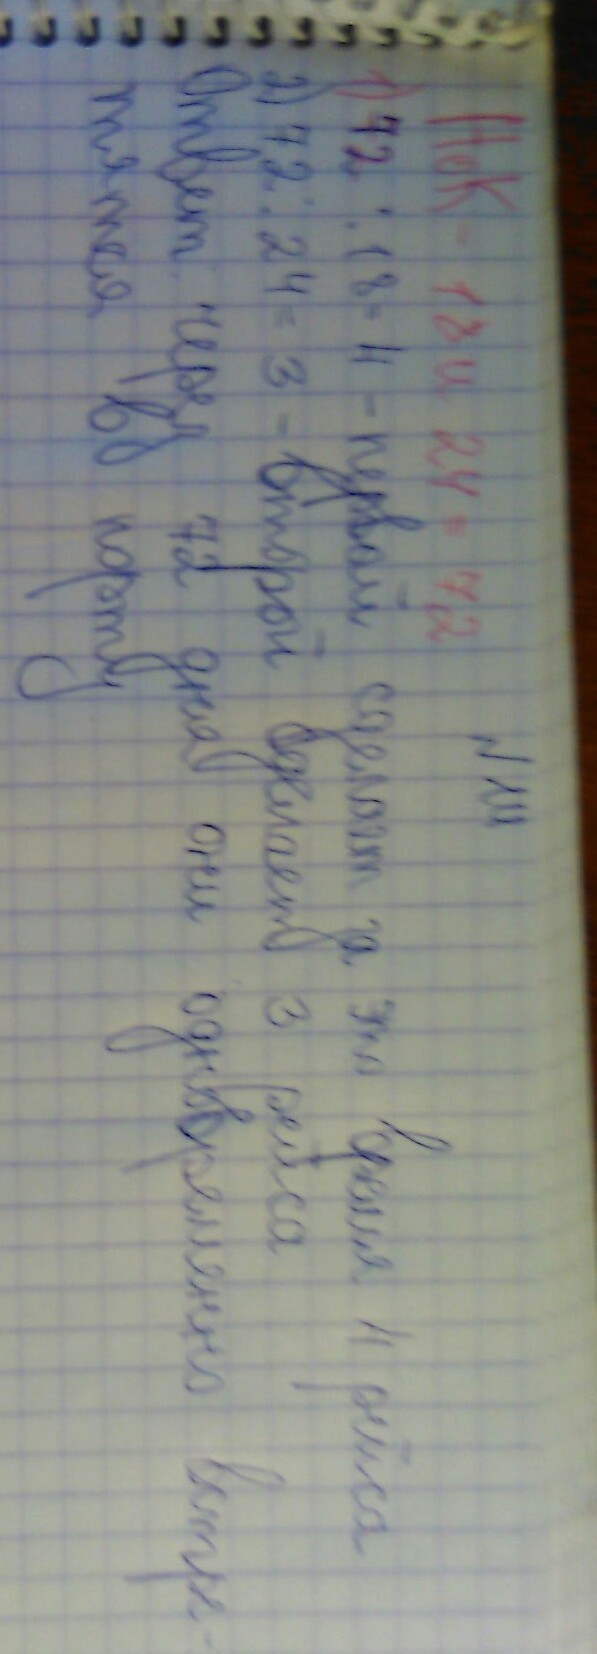 N 111
НоК - 18 и 24 = 72
1) 72 : 18 = 4 - первый сделает за это время 4 рейса
2) 72 : 24 = 3 - второй сделает 3 рейса
Ответ: через 72 дня они одновременно встре-
тятся в порту